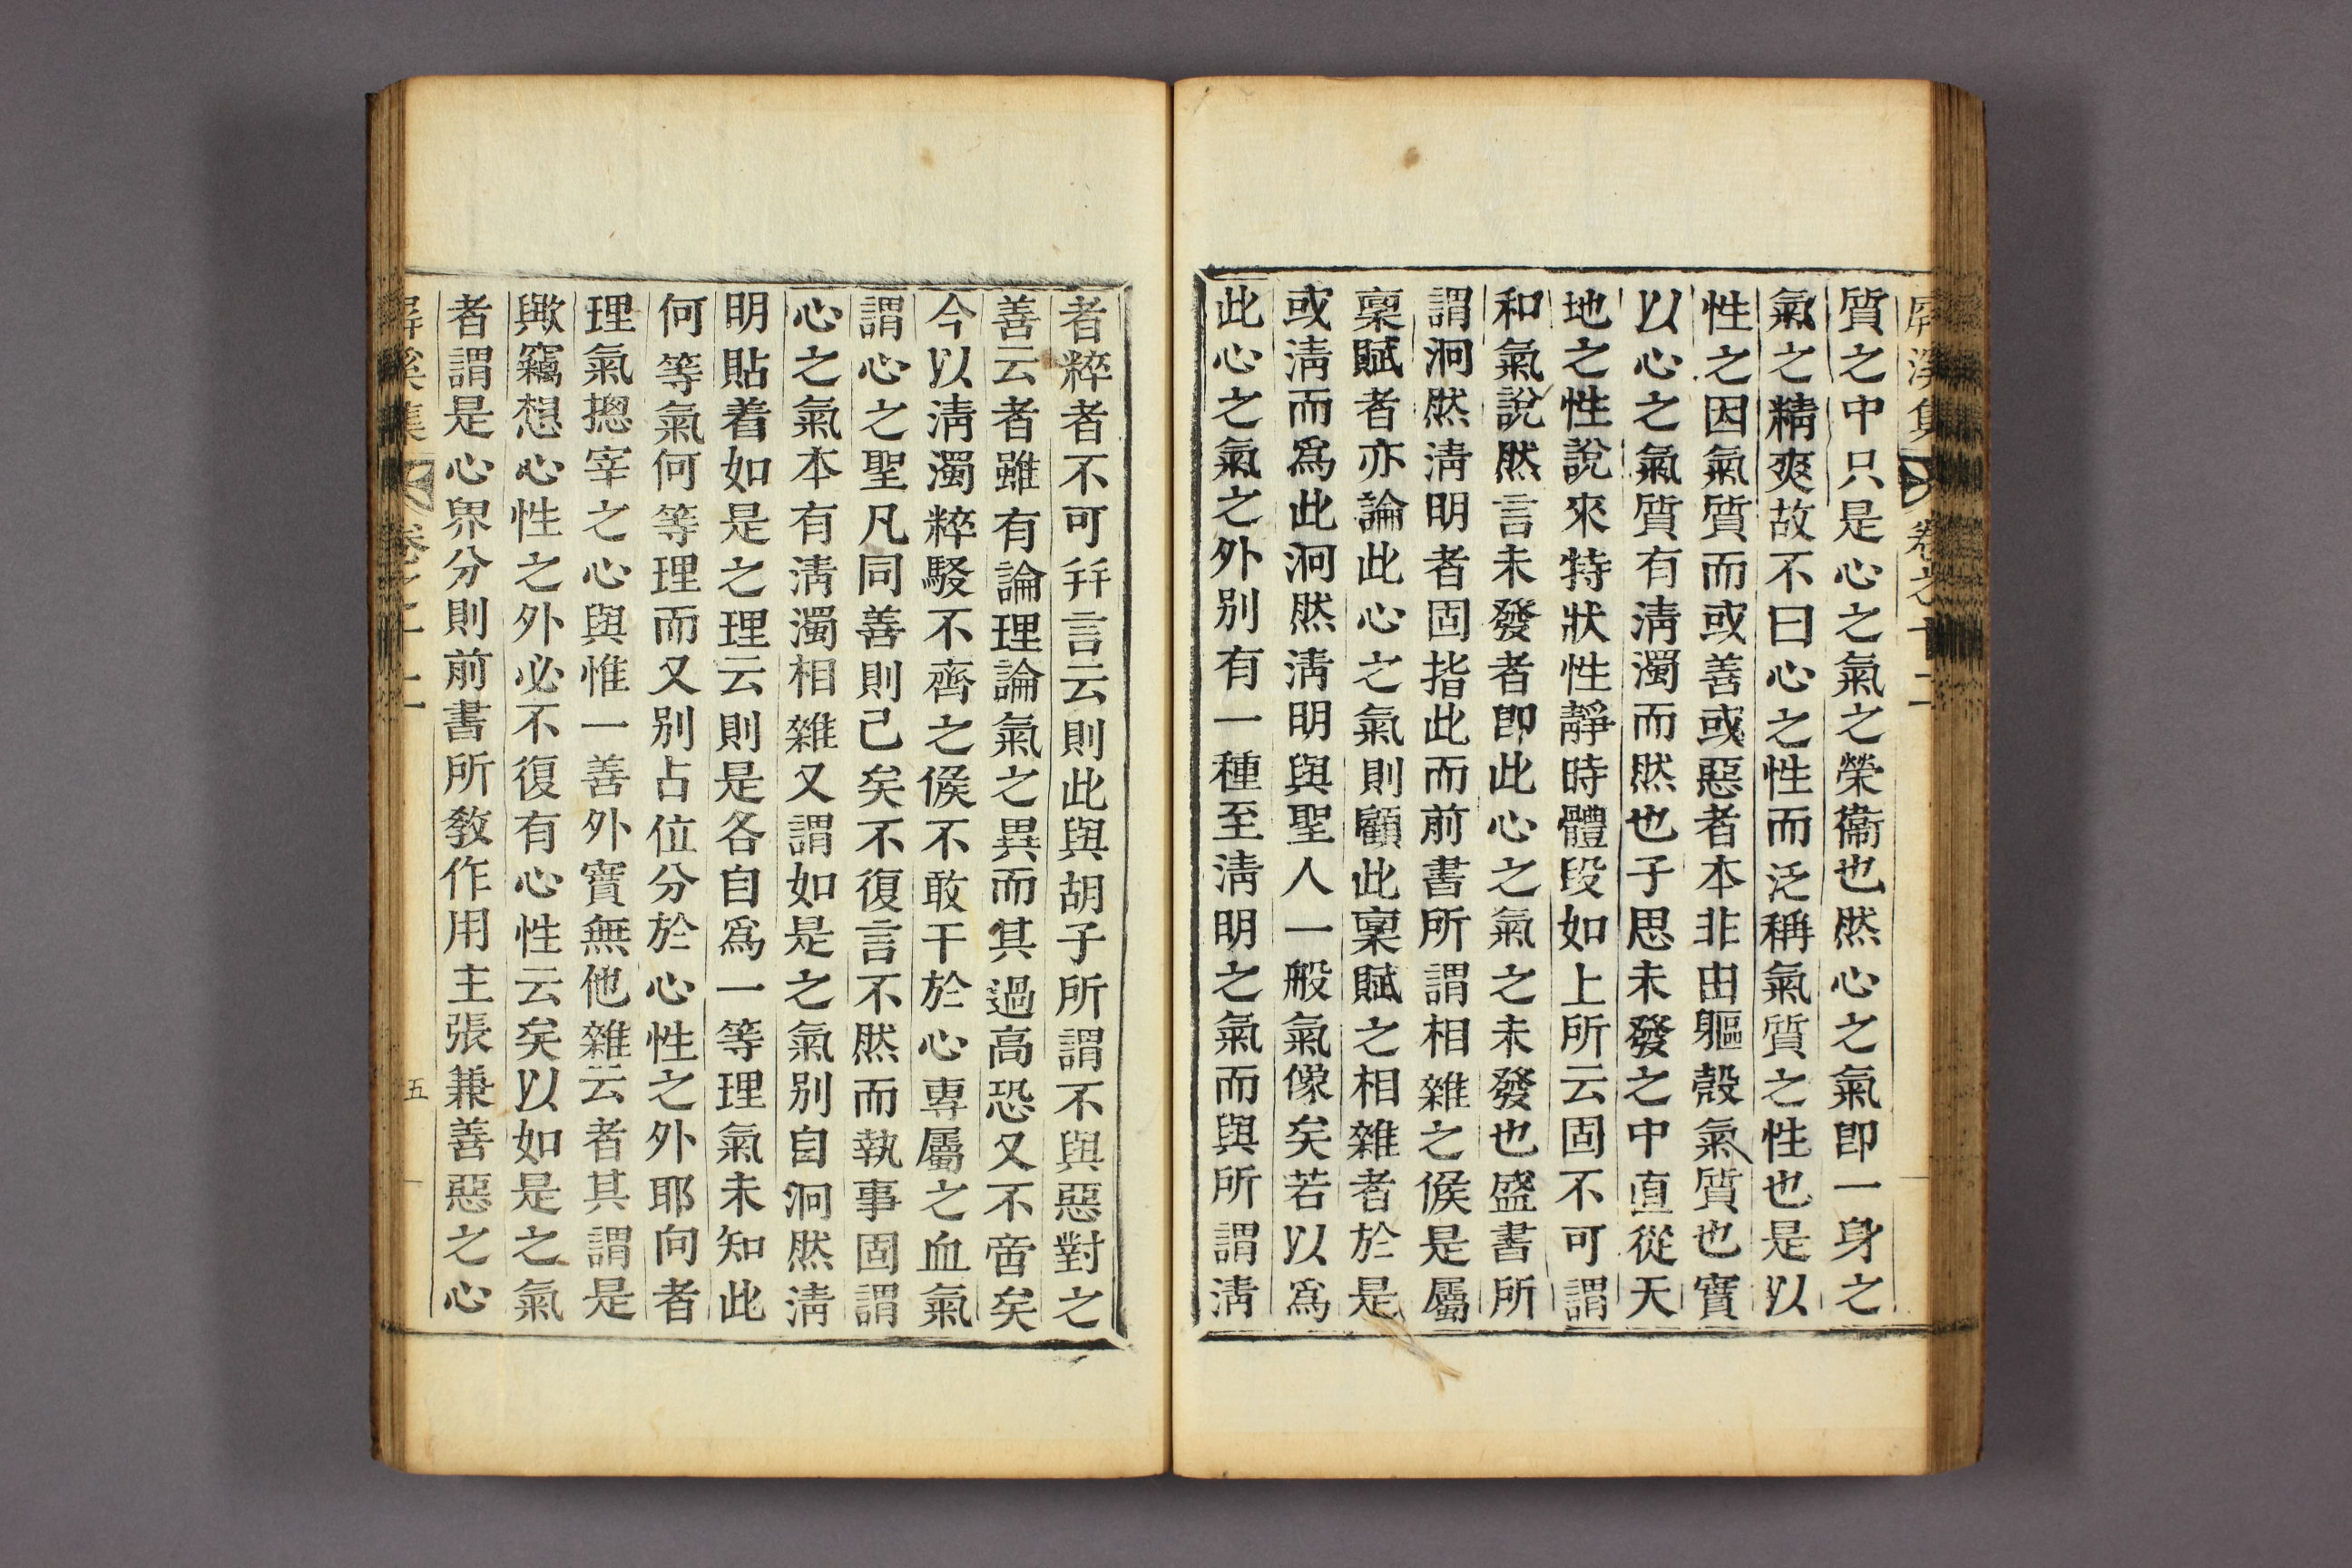 屛溪集 卷之十二
質之中只是心之氣之榮衞也然心之氣卽一身之
氣之精爽故不曰心之性而泛稱氣質之性也是以
性之因氣質而或善或惡者本非由軀殼氣質也實
以心之氣質有淸濁而然也子思未發之中直從天
地之性說來特狀性靜時體段如上所云固不可謂
和氣說然言未發者卽此心之氣之未發也盛書所
謂洞然淸明者固指此而前書所謂相雜之候是屬
稟賦者亦論此心之氣則顧此稟賦之相雜者於是
或淸而爲此洞然淸明與聖人一般氣像矣若以爲
此心之氣之外別有一種至淸明之氣而與所謂淸
者粹者不可幷言云則此與胡子所謂不與惡對之
善云者雖有論理論氣之異而其過高恐又不啻矣
今以淸濁粹駁不齊之候不敢干於心專屬之血氣
謂心之聖凡同善則已矣不復言不然而執事固謂
心之氣本有淸濁相雜又謂如是之氣別自洞然淸
明貼着如是之理云則是各自爲一等理氣未知此
何等氣何等理而又別占位分於心性之外耶向者
理氣摠宰之心與惟一善外實無他雜云者其謂是
歟竊想心性之外必不復有心性云矣以如是之氣
者謂是心界分則前書所敎作用主張兼善惡之心
屛溪集 卷之十二 五